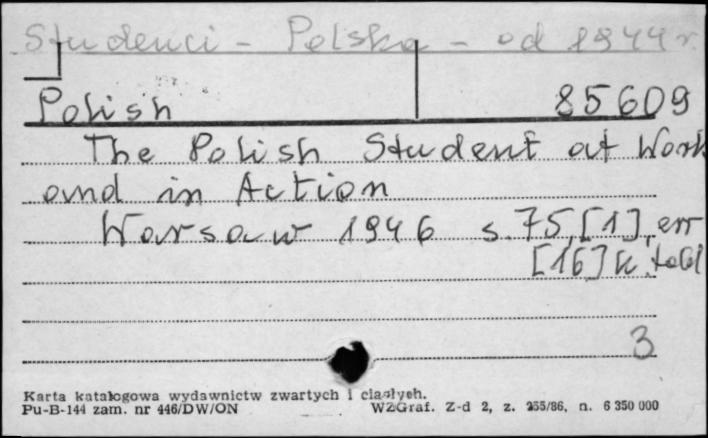 Studenci - Polska - od 1944 r.
Polish 85609
The Polish Student at Work
and in Action
Warsaw 1946 s. 75, [1], err
[16] k. tabl
3
Karta katalogowa wydawnictw zwartych i ciągłych.
Pu-B-144 zam. nr 446/DW/ON WZGraf. Z-d 2, z. 255/86, n. 6 350 000